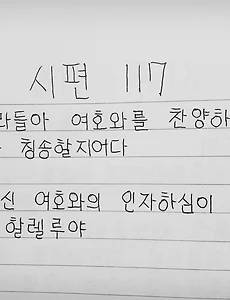 시편 117
라들아 여호와를 찬양하
칭송할지어다
신 여호와의 인자하심이
할렐루야